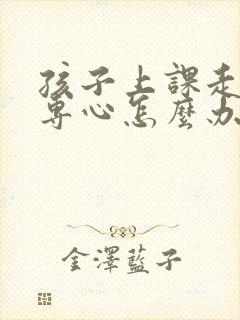 孩子上課走
專心怎麼办
金澤藍子